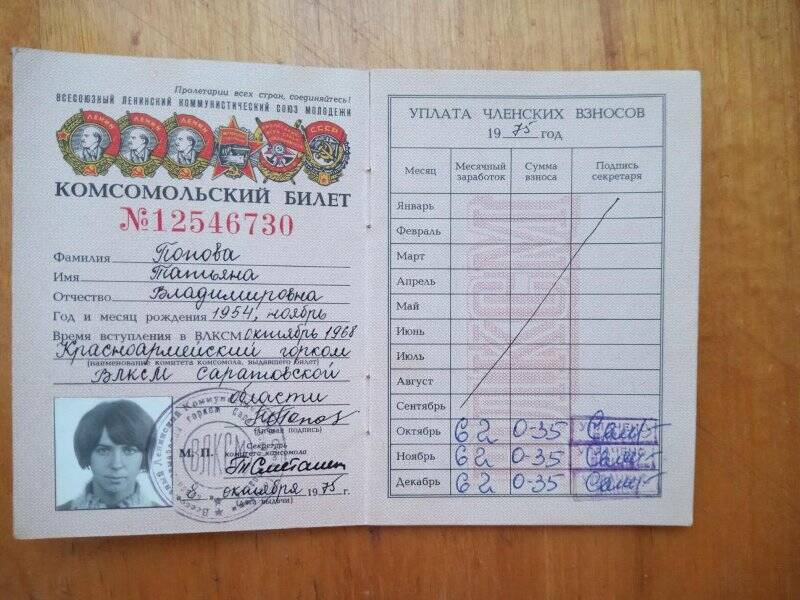 Пролетарии всех стран, соединяйтесь!
ВСЕСОЮЗНЫЙ ЛЕНИНСКИЙ КОММУНИСТИЧЕСКИЙ СОЮЗ МОЛОДЕЖИ
ЛЕНИН ЛЕНИН ЛЕНИН СССР
КОМСОМОЛЬСКИЙ БИЛЕТ
№12546730
Фамилия Попова
Имя Татьяна
Отчество Владимировна
Год и месяц рождения 1954, ноябрь
Время вступления в ВЛКСМ октябрь 1968
Красноармейский горком
(наименование комитета комсомола, выдавшего билет)
ВЛКСМ Саратовской
области
(личная подпись)
М. П.
Секретарь
комитета комсомола
октября 1975 г.
(дата выдачи)
ВЛКСМ
УПЛАТА ЧЛЕНСКИХ ВЗНОСОВ
1975 год
Месяц Месячный заработок Сумма взноса Подпись секретаря
Январь
Февраль
Март
Апрель
Май
Июнь
Июль
Август
Сентябрь
Октябрь 62 0-35
Ноябрь 62 0-35
Декабрь 62 0-35
ВЛКСМ